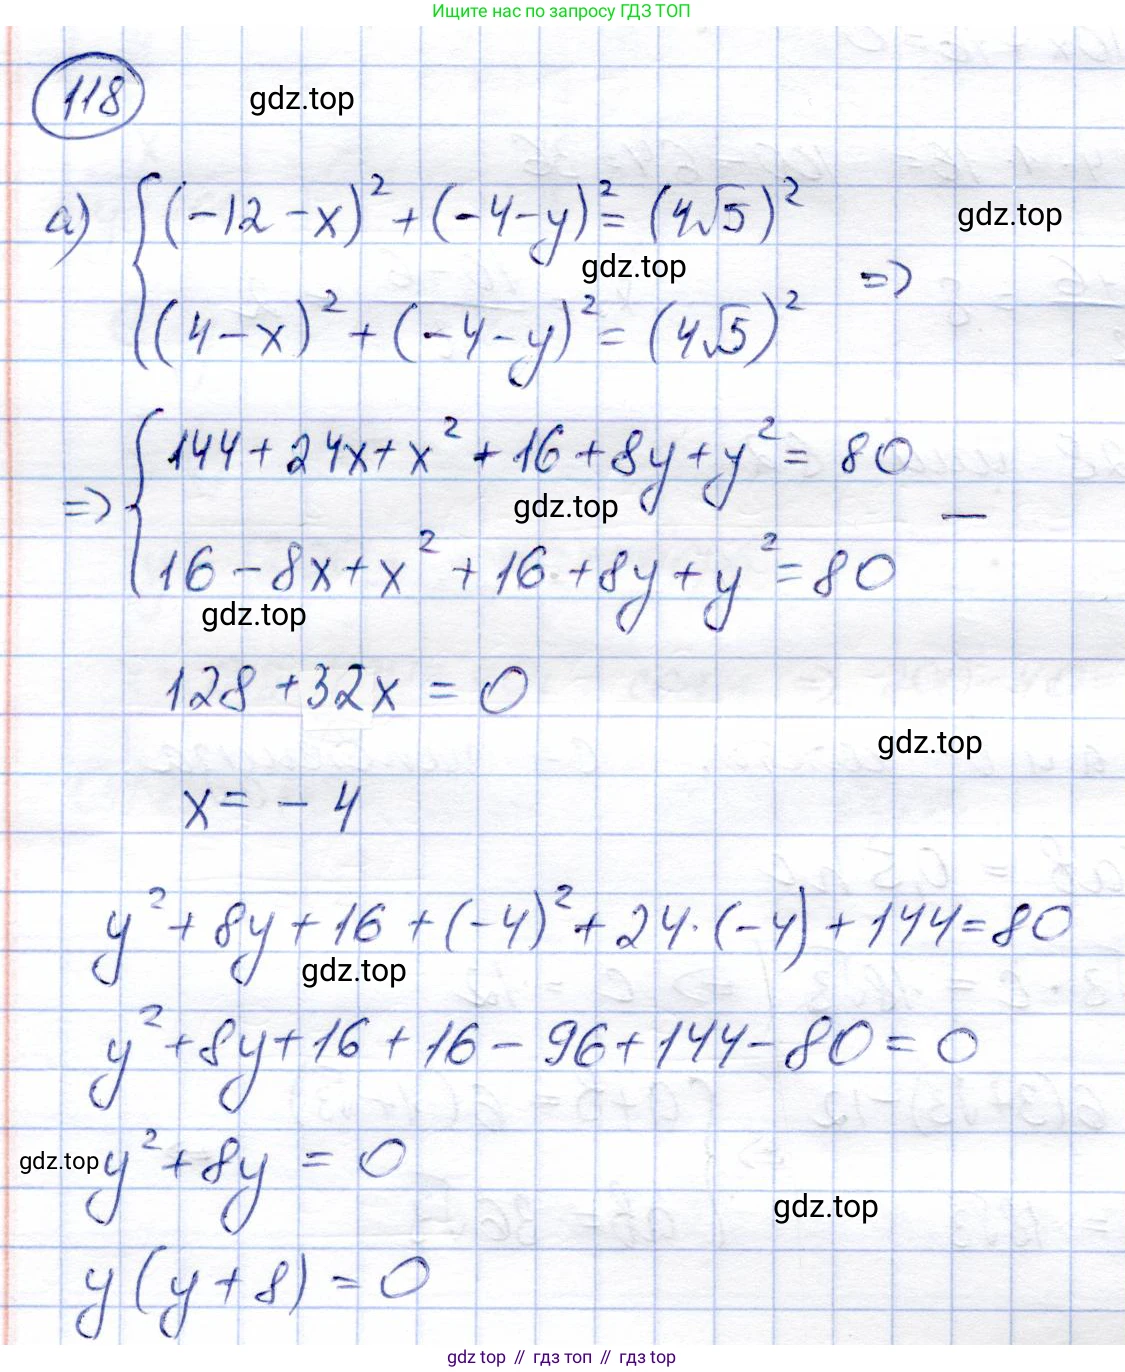 Ищите нас по запросу ГДЗ ТОП
118
gdz.top
а) { (-12-x)² + (-4-y)² = (4√5)²
gdz.top
gdz.top
(4-x)² + (-4-y)² = (4√5)² =>
=> { 144 + 24x + x² + 16 + 8y + y² = 80
gdz.top
—
16 - 8x + x² + 16 + 8y + y² = 80
gdz.top
128 + 32x = 0
gdz.top
x = -4
y² + 8y + 16 + (-4)² + 24·(-4) + 144 = 80
gdz.top
y² + 8y + 16 + 16 - 96 + 144 - 80 = 0
gdz.top
y² + 8y = 0
gdz.top
y(y+8) = 0
gdz.top // гдз топ // гдз top